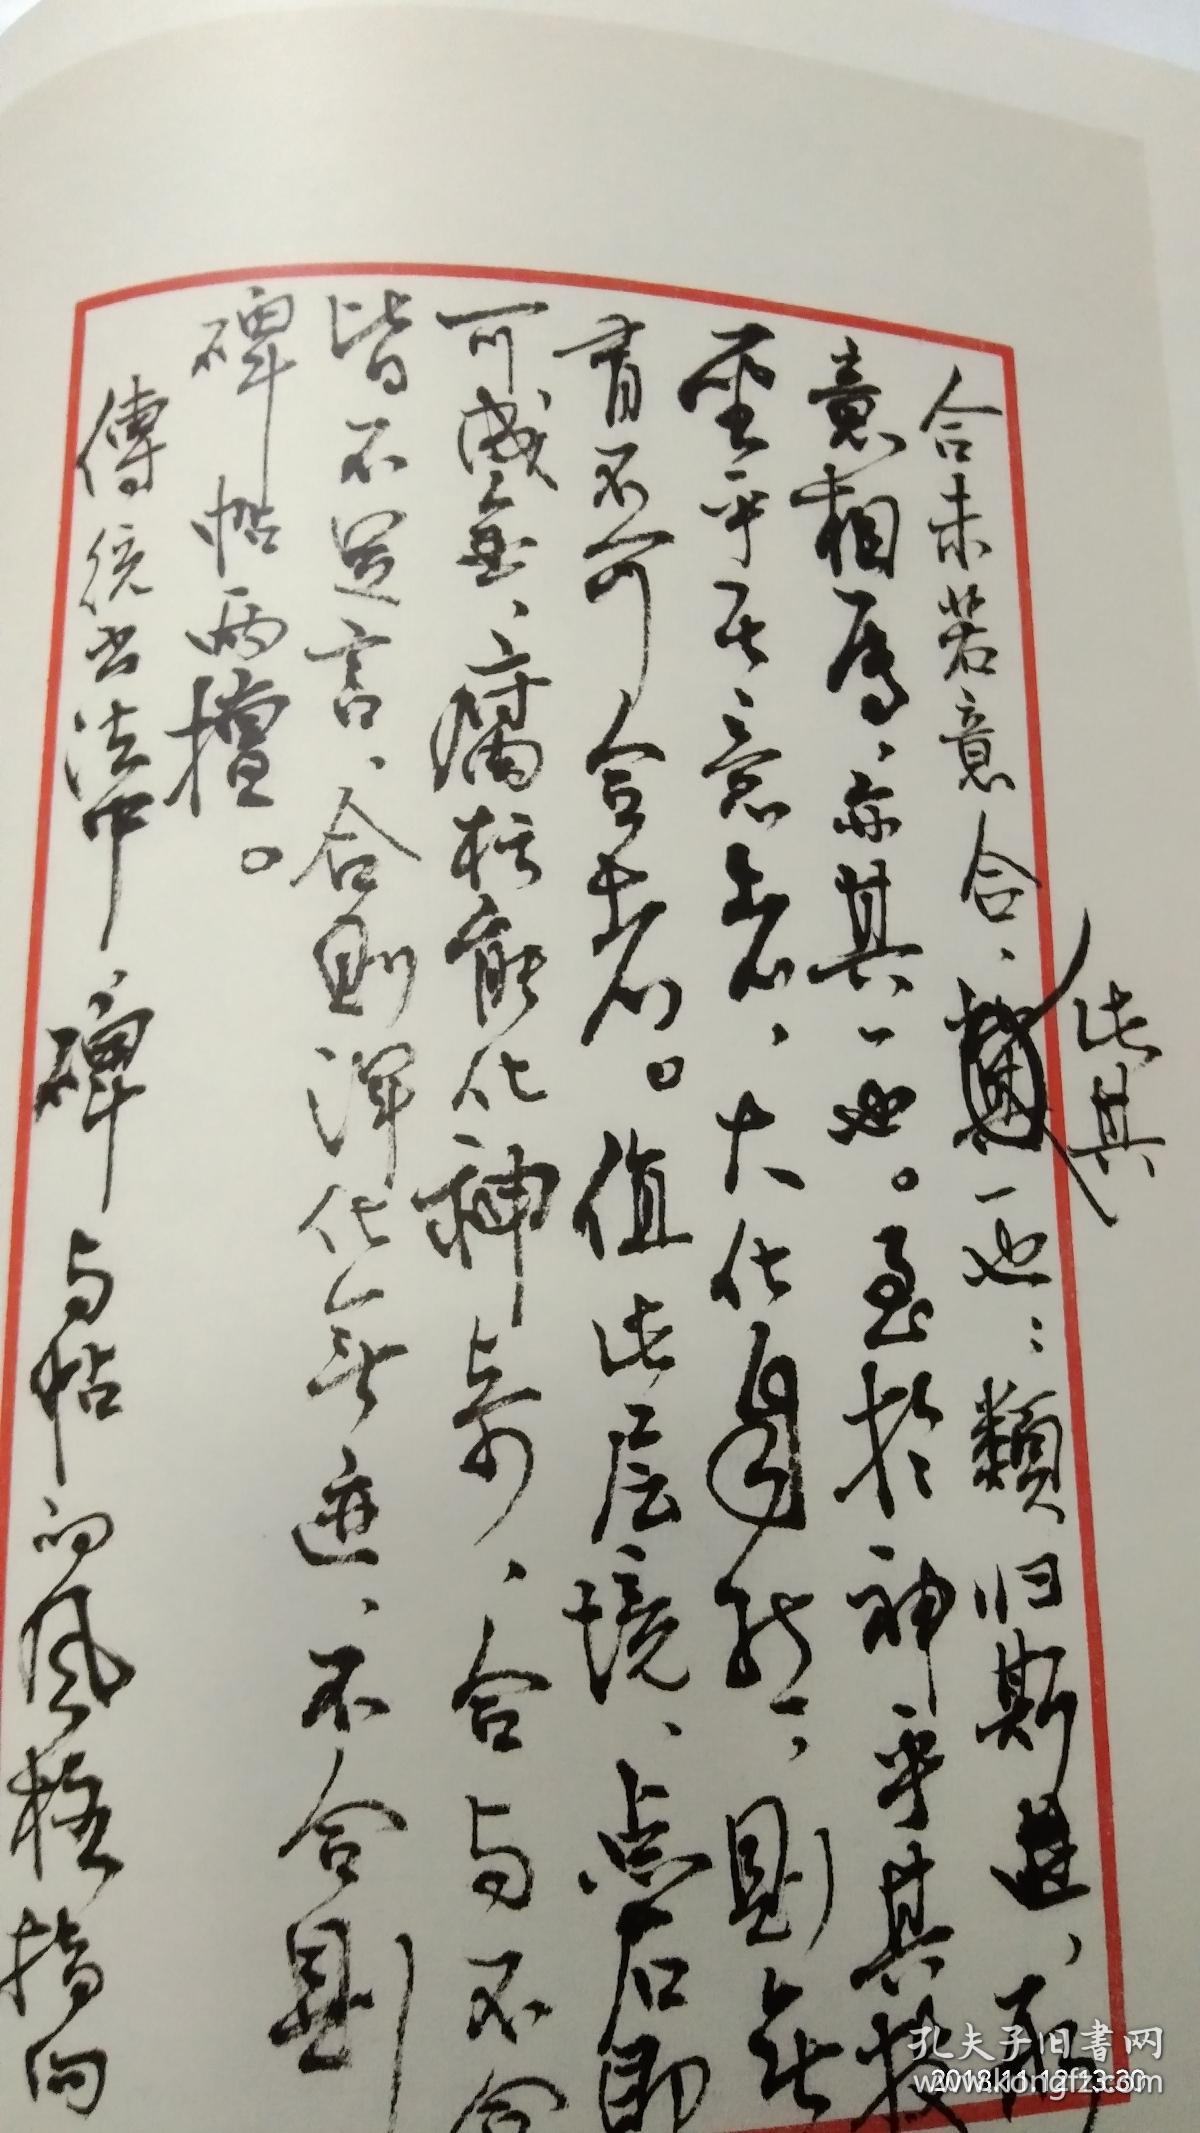 合未若意合、此其一也；類归斯進、两
意相屬、亦其一也。至於神乎其技
聖乎其意者、大化自然、則无
有不可合者。值此层境、点石即
可成金、腐朽能化神奇、合与不合
皆不足言、合则渾化無迹、不合則
碑帖兩擅。
傳統书法中、碑与帖的风格指向
孔夫子旧書网
www.kongfz.com
2018.11.12 13:30